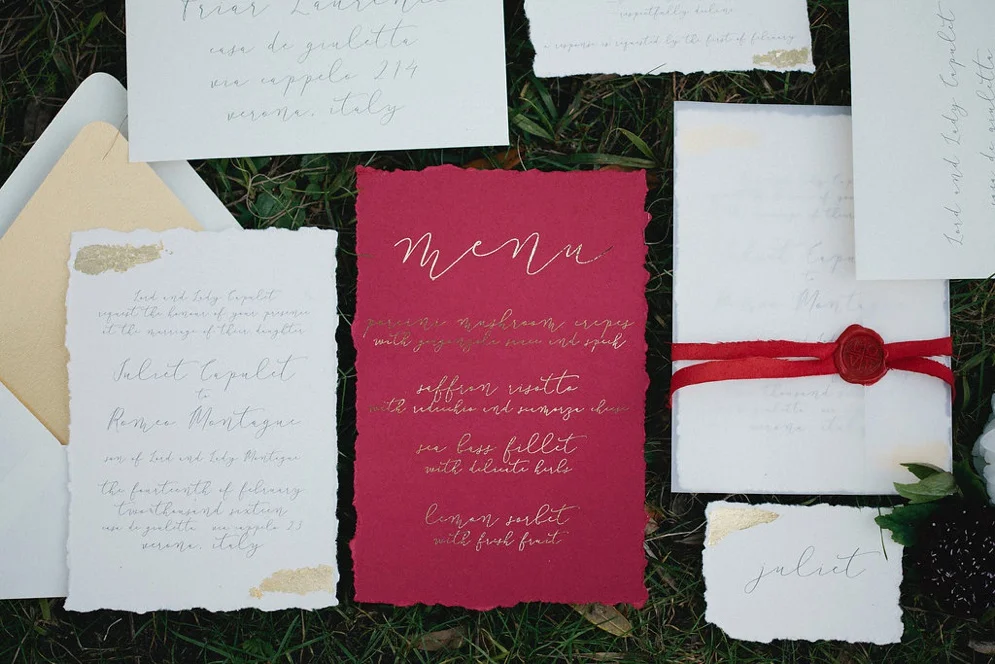 Friar Laurence
casa de giuletta
via cappelo 214
verona, italy
respectfully decline
a response is requested by the first of february
Lord and Lady Capulet
casa de giuletta
Lord and Lady Capulet
request the honour of your presence
at the marriage of their daughter
Juliet Capulet
to
Romeo Montague
son of Lord and Lady Montague
the fourteenth of february
twothousand sixteen
casa de giuletta via cappelo 23
verona, italy
menu
porcini mushroom crepes
with gorgonzola sauce and speck
saffron risotto
with radicchio and scamorza cheese
sea bass fillet
with delicate herbs
lemon sorbet
with fresh fruit
juliet